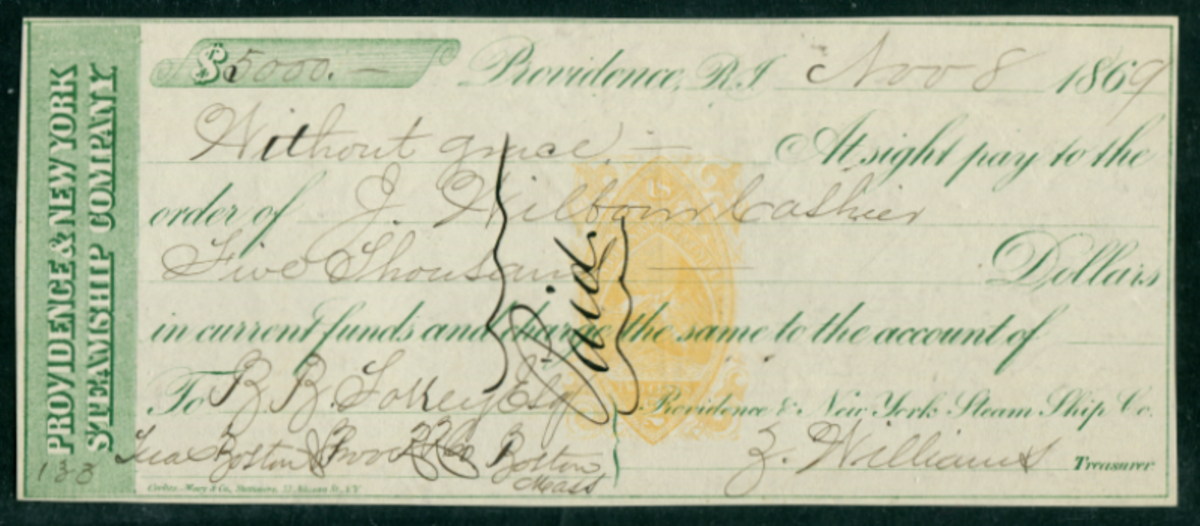 PROVIDENCE & NEW YORK
STEAMSHIP COMPANY
$5000.—
Providence, R.I. Nov 8 1869
Without grace, — At sight pay to the
order of J. Wilbour Cashier
Five Thousand — Dollars
in current funds and charge the same to the account of
To B. B. Esq Providence & New York Steam Ship Co.
Treas Boston & Prov RR Co Boston Z. Williams Treasurer
Mass
133
Paid.